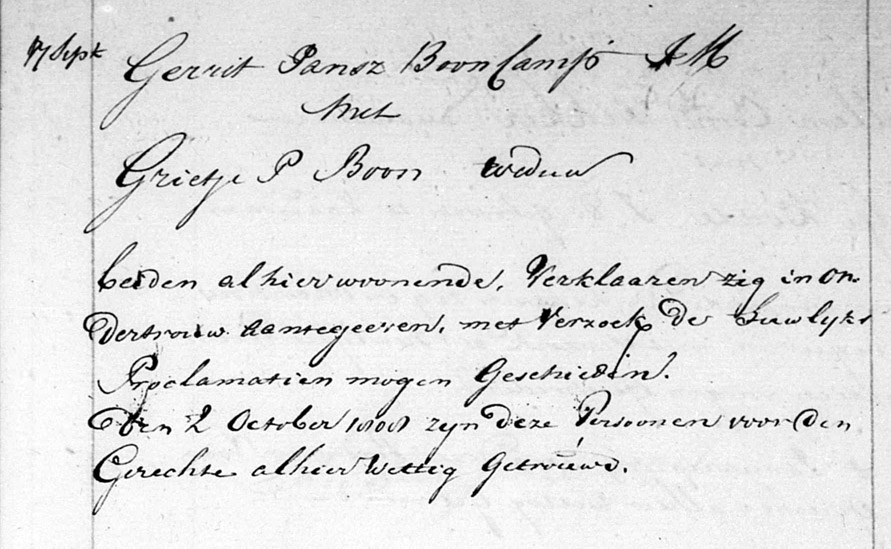 17 Sept Gerrit Jansz Boon Camp JM
Met
Grietje P Boon weduw
beiden alhier woonende, Verklaaren zig in on-
dertrouw aantegeeven, met Verzoek de Huwlyks
Proclamatien mogen Geschieden.
Den 2 October zyn deze Persoonen voor den
Gerechte alhier Wettig Getrouwd.